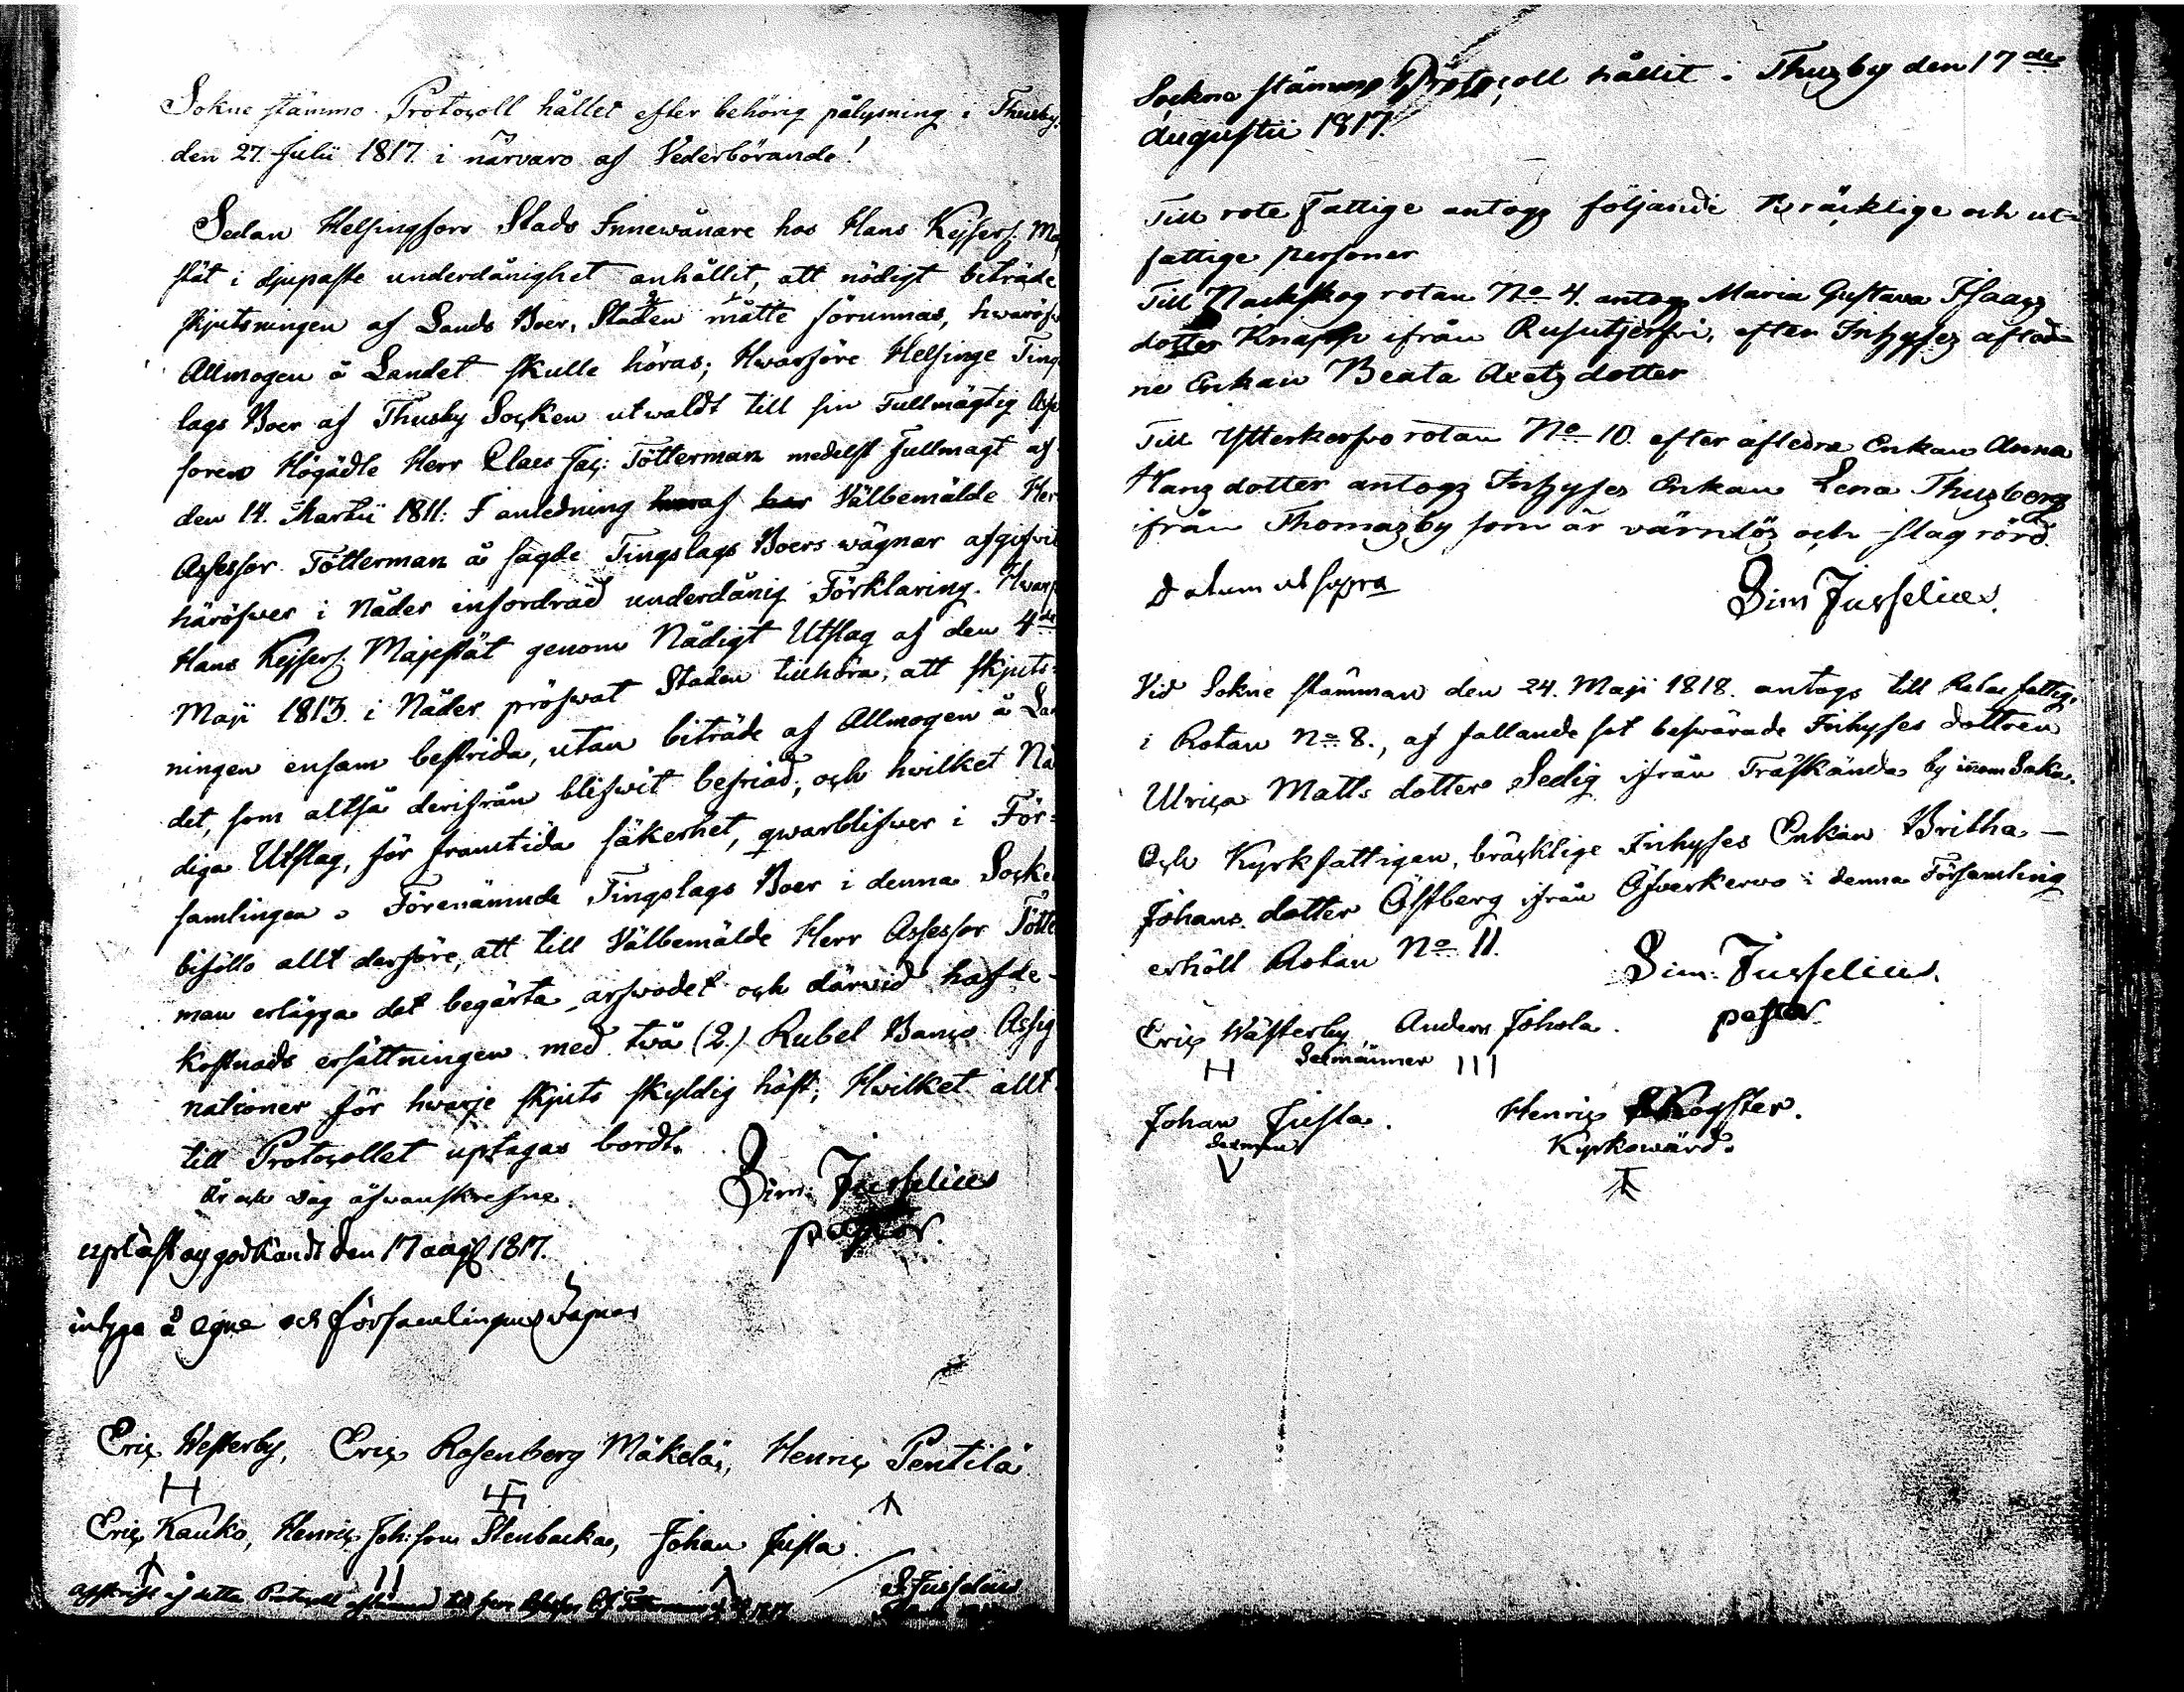 Sokne stämmo Protocoll hållet efter behörig pålysning i Thusby
den 27. Julii 1817. i närvaro af Vederbörande!
Sedan Helsingfors Stads Innewånare hos Hans Kejserl. Maj
stät i djupaste underdånighet anhållit, att nödigt biträde
skjutsningen af Lands Boer, Staden måtte förunnas, hwaröfw
Allmogen å Landet skulle höras; Hwarföre Helsinge Ting
lags Boer af Thusby Socken utwaldt till sin Fullmägtig Asse
soren Högädle Herr Claes Jac: Tötterman medelst Fullmagt af
den 14. Martii 1811: I anledning hwaraf har Välbemälde Her
Assessor Tötterman å sagde Tingslags Boers wägnar afgifvit
häröfwer i Nåder infordrad underdånig Förklaring. Hwarp
Hans Kejserl. Majestät genom Nådigt Utslag af den 4de
Maji 1813. i Nåder pröfwat Staden tillhöra, att skjuts-
ningen ensam bestrida, utan biträde af Allmogen å Lan
det, som altså derifrån blifwit befriad; och hvilket Nå
diga Utslag, för framtida säkerhet, qwarblifwer i För=
samlingen. Förenämnde Tingslags Boer i denna Socken
biföllo allt derföre, att till Välbemälde Herr Assessor Tötter
man erlägga det begärta arfwodet och därwid hafde-
kostnads ersättningen med två (2.) Rubel Banco Assig
nationer för hwarje skjuts skyldig häst; Hwilket allt
till Protocollet uptagas bordt.
År och dag ofwanskrefne.
Sim: Jusselius
pastor.
upläst og godkändt den 17 aug 1817.
intyga å egne och församlingens vägnar
Eric Westerby, Eric Rosenberg Mäkelä, Henric Pentilä
Eric Kauko, Henric Joh:son Stenbacka, Johan Jusla.
Afskrift af detta Protocoll
S. Jusselius
Sockne stämmo Protocoll hållit i Thusby den 17de
Augustii 1817.
Till rote fattige antogs följande bräcklige och ut-
fattige personer
Till Nackskog rotan No 4. antogs Maria Gustava Isaags
dotter Knapp ifrån Rusutjerfvi, efter Inhyses afled-
ne Enkan Beata Axels dotter
Till Ytterkerfvo rotan No 10. efter afledna Enkan Anna
Hans dotter antogs Inhyses Enkan Lena Thusberg
ifrån Thomasby som är värnlös och slag rörd.
Datum ut supra
Sim Jusselius.
Vid Sokne stämman den 24. Maji 1818. antogs till Rotes fattig,
i Rotan No 8., af fallande sot beswärade Inhyses dottren
Ulrica Matts dotter Sedig ifrån Träskända by inom Sokn.
Och Kyrkfattigen, bräcklige Inhyses Enkan Britha
Johans dotter Östberg ifrån Öfverkervo i denna Församling
erhöll Rotan No 11.
Sim: Jusselius.
pastor
Eric Wästerby Anders Johola.
Sexmänner
Johan Jusla. Henric Skogster.
Sexman Kyrkowärd.